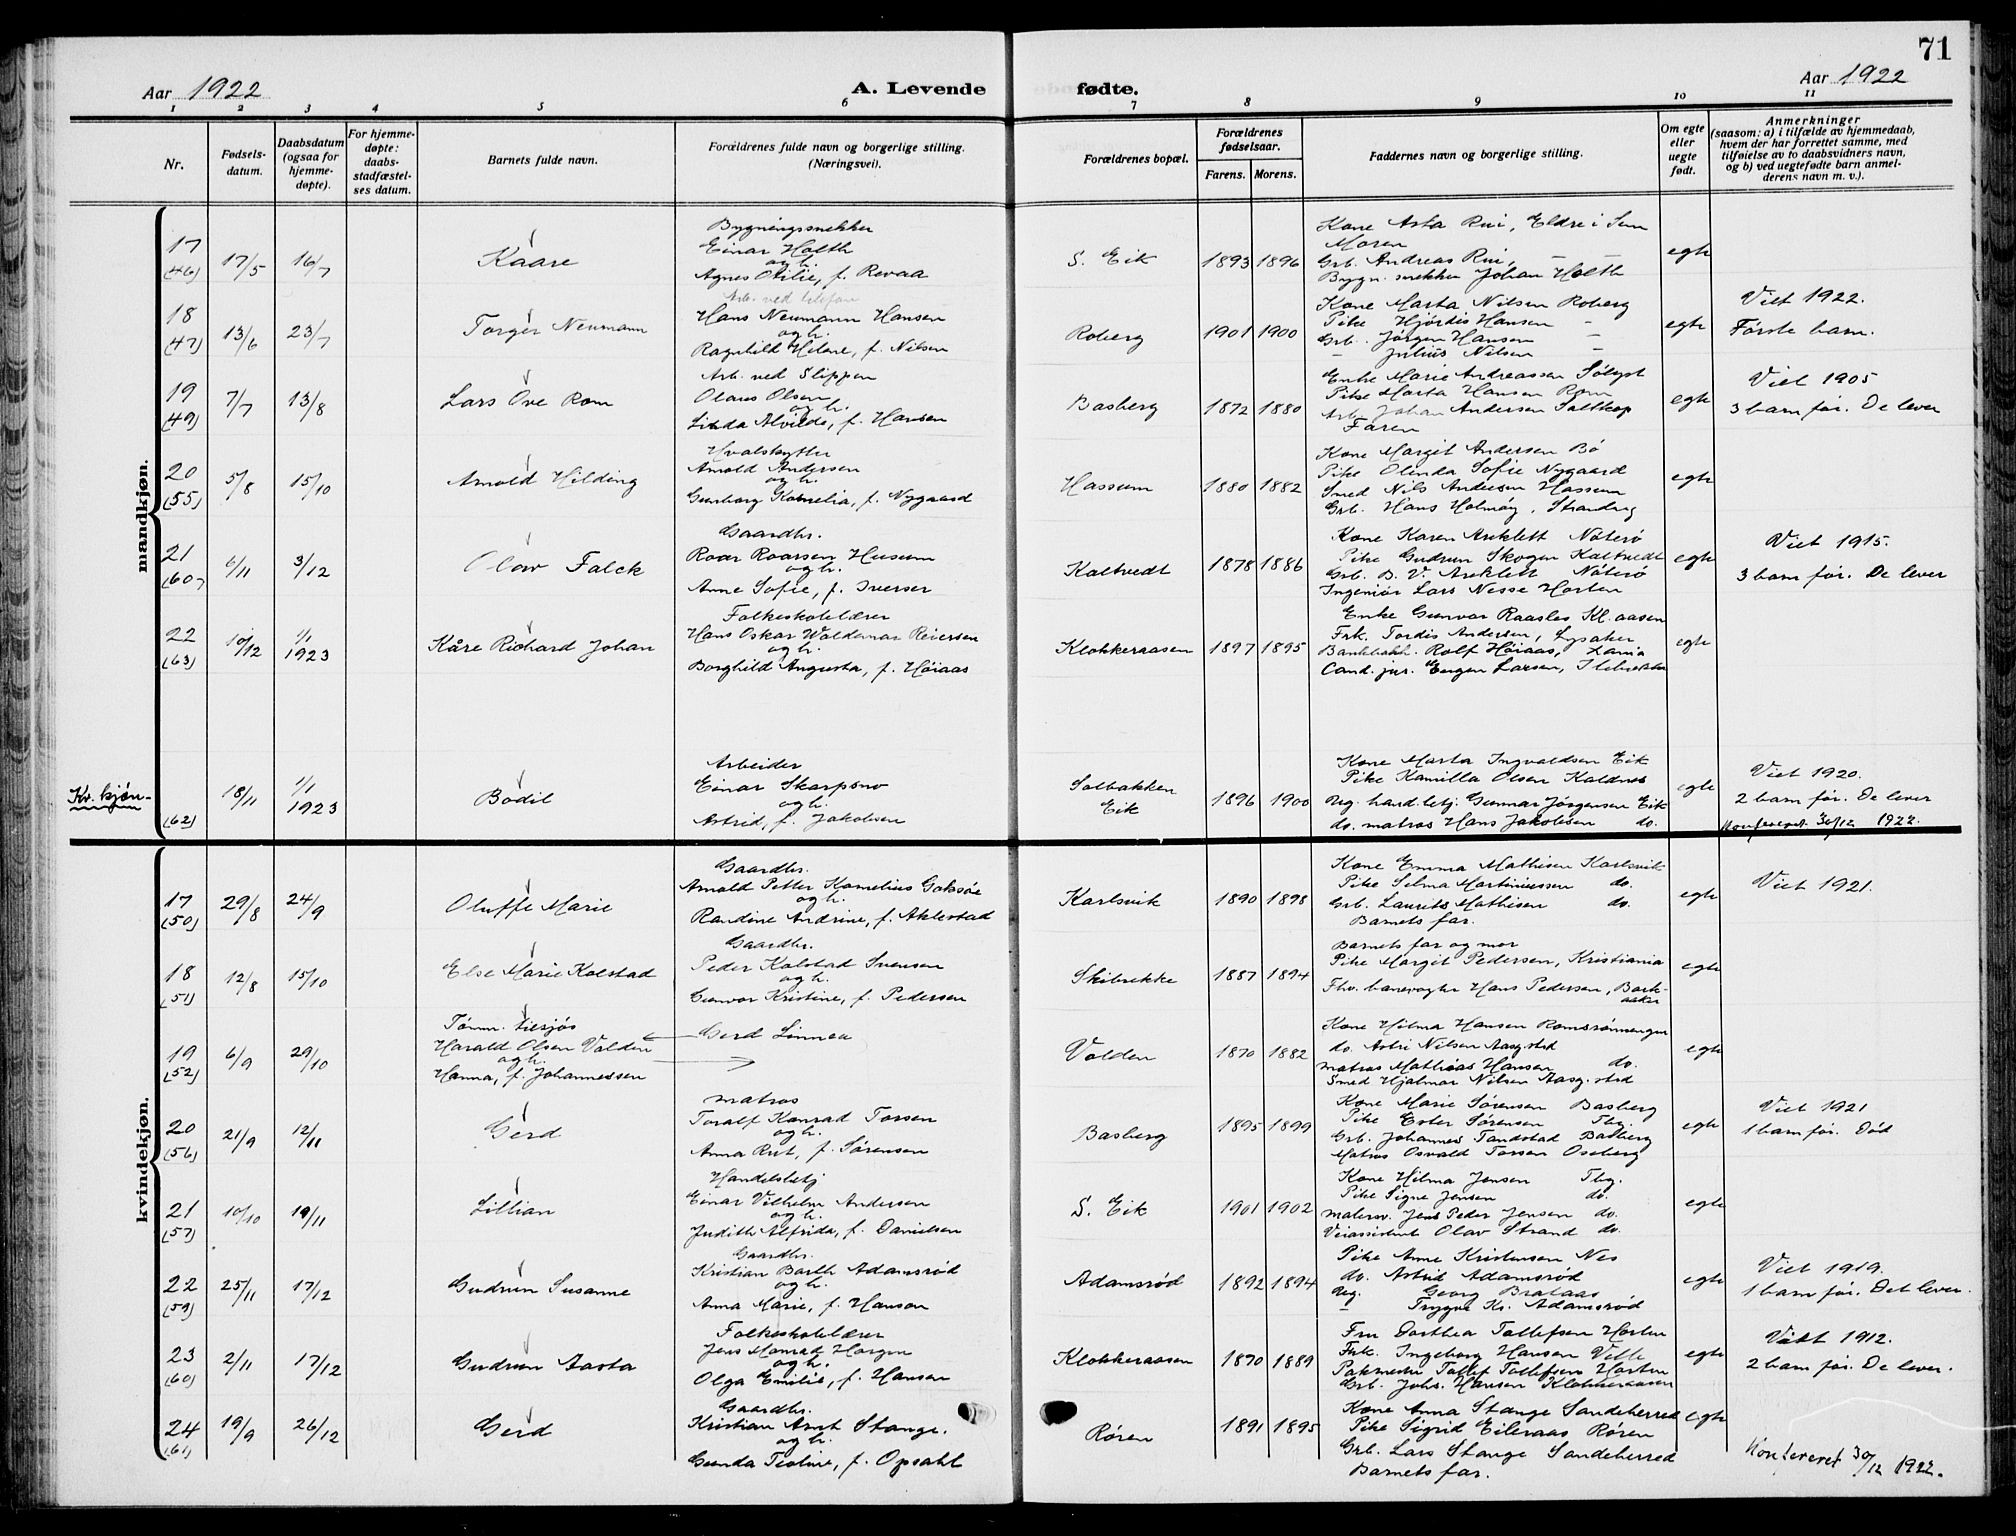 71
Aar 1922
A. Levende
fødte.
Aar 1922
1 2 3 4 5 6 7 8 9 10 11
Nr.
Fødsels-
datum.
Daabsdatum
(ogsaa for
hjemme-
døpte).
For hjemme-
døpte:
daabs-
stadfæstel-
ses datum.
Barnets fulde navn.
Forældrenes fulde navn og borgerlige stilling.
(Næringsvei).
Forældrenes bopæl.
Forældrenes
fødselsaar.
Farens. Morens.
Faddernes navn og borgerlige stilling.
Om egte
eller
uegte
født.
Anmerkninger
(saasom: a) i tilfælde av hjemmedaab,
hvem der har forrettet samme, med
tilføielse av to daabsvidners navn,
og b) ved uegtefødte barn anmel-
derens navn m. v.).
mandkjøn.
17
(46)
17/5
16/7
Kaare
Bygningssnekker
Einar Holth
og h.
Agnes Otilie, f. Revaa
S. Eik
1893 1896
Kone Asta Rui, Eldre i Sem
Moren
Grb. Andreas Rui, — —
Bygn. snekker Johan Holth
egte
18
(47)
13/6
23/7
Torger Neumann
Arb. ved telefon
Hans Neumann Hansen
og h.
Ragnhild Helene, f. Nilsen
Roberg
1901 1900
Kone Marta Nilsen Roberg
Pike Hjørdis Hansen -
Grb. Jørgen Hansen —
— Julius Nilsen —
egte
Viet 1922.
Første barn.
19
(49)
7/7
13/8
Lars Ove Rom
Arb. ved Slippen
Olaus Olsen
og h.
Linda Alvilde, f. Hansen
Basberg
1872 1880
Enke Marie Andreassen Solyst
Pike Marta Hansen Rom
Arb. Johan Andersen Saltkop
Faren
egte
Viet 1905
3 barn før. De lever
20
(55)
5/8
15/10
Arnold Hilding
Hvalskytter
Arnold Andersen
og h.
Gunborg Kornelia, f. Nygaard
Hassum
1880 1882
Kone Margit Andersen Bø
Pike Olinda Sofie Nygaard
Smed Nils Andersen Hassum
Grb. Hans Holmøy, Strandvg
egte
21
(60)
6/11
3/12
Olav Falck
Gaardbr.
Roar Roarsen Husum
og h.
Anne Sofie, f. Iversen
Kaltvedt
1878 1886
Kone Karen Areklett Nøterø
Pike Gudrun Skogen Kaltvedt
Grb. B. V. Areklett Nøterø
Ingeniør Lars Nesse Horten
egte
Viet 1915.
3 barn før. De lever
22
(63)
10/12
1/1
1923
Kåre Richard Johan
Folkeskolelærer
Hans Oskar Waldemar Reiersen
og h.
Borghild Augusta, f. Høiaas
Klokkeraasen
1897 1895
Enke Gunvor Raasles Kl.aasen
Frk. Tordis Andersen, Lysaker
Rolf Høiaas, Xania
Cand. jur. Eugen Larsen,
egte
Kv. kjøn-
(62)
18/11
1/1
1923
Bodil
Arbeider
Einar Skarpsno
og h.
Astrid, f. Jakobsen
Solbakken
Eik
1896 1900
Kone Marta Ingvaldsen Eik
Pike Kamilla Olsen Kaldnes
Ug. hand.betj. Gunnar Jørgensen Eik
do. matros Hans Jakobsen do.
egte
Viet 1920.
2 barn før. De lever
Konfereret 30/12 1922.
kvindekjøn.
17
(50)
29/8
24/9
Oluffe Marie
Gaardbr.
Arnold Petter Kornelius Goksøe
og h.
Randine Andrine, f. Aklestad
Karlsvik
1890 1898
Kone Emma Mathisen Karlsvik
Pike Selma Martiniussen do.
Grb. Laurits Mathisen do.
Barnets far.
egte
Viet 1921.
18
(51)
12/8
15/10
Else Marie Kolstad
Gaardbr.
Peder Kolstad Svensen
og h.
Gunvor Kristine, f. Pedersen
Skibrekke
1887 1894
Barnets far og mor
Pike Margit Pedersen, Kristiania
Fhv. banevogter Hans Pedersen, Bark-
aaker
egte
19
(52)
6/9
29/10
Harald Olsen Volden
og h.
Hanna, f. Johannessen
Gerd Linnea
Volden
1870 1882
Kone Hilma Hansen
do. Astri Nilsen Aasg.stad
matros Mathias Hansen do.
Smed Hjalmar Nilsen Aasg.strd
egte
20
(56)
21/9
12/11
Gerd
matros
Toralf Konrad Torsen
og h.
Anna Rut, f. Sørensen
Basberg
1895 1899
Kone Marie Sørensen Basberg
Pike Ester Sørensen Tbg.
Grb. Johannes Tandstad Basberg
Matros Osvald Torsen Oseberg
egte
Viet 1921
1 barn før. Død
21
(57)
10/10
19/11
Lillian
Handelsbetj
Einar Vilhelm Andersen
og h.
Judith Alfrida, f. Danielsen
S. Eik
1901 1902
Kone Hilma Jensen Tbg.
Pike Signe Jensen do.
malersv. Jens Peder Jensen do.
Veiassistent Olav Strand do.
egte
22
(59)
25/11
17/12
Gudrun Susanne
Gaardbr.
Kristian Barth Adamsrød
og h.
Anna Marie, f. Hanson
Adamsrød
1892 1894
Pike Anne Kristensen Nes
do. Astrid Adamsrød
Ug. Georg Brataas
— Trygve Kr. Adamsrød
egte
Viet 1919.
1 barn før. Det lever.
23
(60)
2/11
17/12
Gudrun Aasta
Folkeskolelærer
Jens Monrad Horgen
og h.
Olga Emilie, f. Hansen
Klokkeraasen
1870 1889
Fru Dorthea Tollefsen Horten
Frk. Ingeborg Hansen Velle
Pakmester Tollef Tollefsen Horten
Grb. Johs. Hansen Klokkeraasen
egte
Viet 1912.
2 barn før. De lever.
24
(61)
19/9
26/12
Gerd
Gaardbr.
Kristian Arnt Stange.
og h.
Gunda Teoline, f. Opsahl
Røren
1891 1895
Kone Anna Stange Sandeherred
Pike Sigrid Eileraas Røren
Grb. Lars Stange Sandeherred
Barnets far.
egte
Konfereret 30/12 1922.